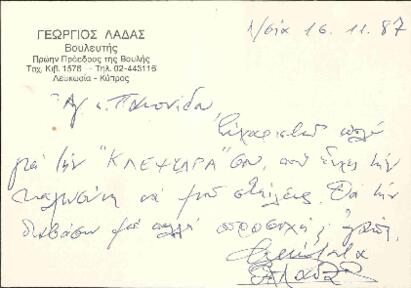 ΓΕΩΡΓΙΟΣ ΛΑΔΑΣ
Βουλευτής
Πρώην Πρόεδρος της Βουλής
Ταχ. Κιβ. 1578 - Τηλ. 02-443116
Λευκωσία - Κύπρος
Λ/σία 16.11.87
Αγ. κ. Παιονίδου
Ευχαριστώ πολύ
γιά την "ΚΛΕΨΥΔΡΑ" σου, που είχες την
καλωσύνη να μου στείλεις. Θα την
διαβάσω με πολλή προσοχή,